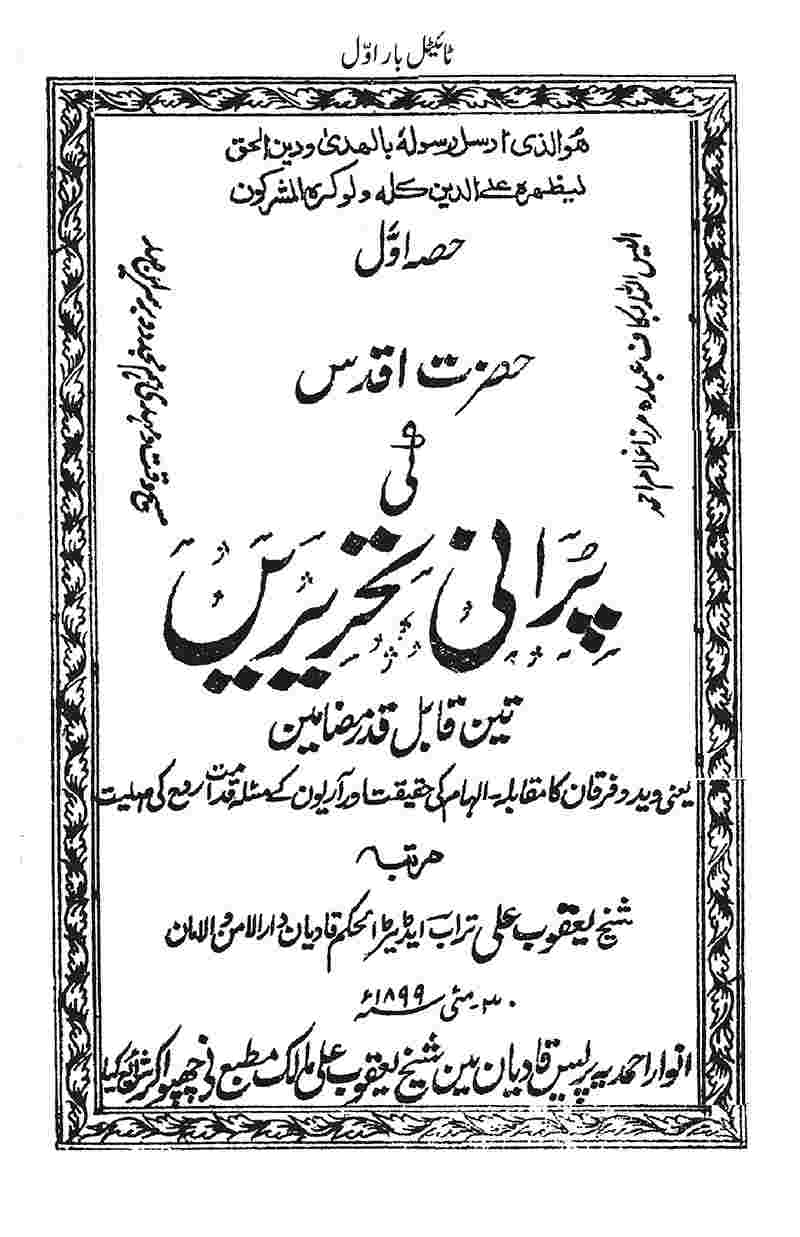 ٹائیٹل بار اوّل
ھو الذی ارسل رسولہ بالھدیٰ و دین الحق
لیظھرہ علی الدین کلہ ولو کرہ المشرکون
حصہ اوّل
الیس اللہ بکاف عبدہ مرزا غلام احمد
حضرت اقدس
کی
پُرانی تحریریں
تین قابل قدر مضامین
یعنی وید و فرقان کا مقابلہ - الہام کی حقیقت اور آریون کے مسئلہ قدامت روح کی مہلیت
مرتبہ
شیخ یعقوب علی تراب ایڈیٹر الحکم قادیان دارالامن والامان
۳۰ - مئی سنہ ۱۸۹۹ء
انوار احمدیہ پریس قادیان مین شیخ یعقوب علی مالک مطبع نے چھپوا کر شائع کیا